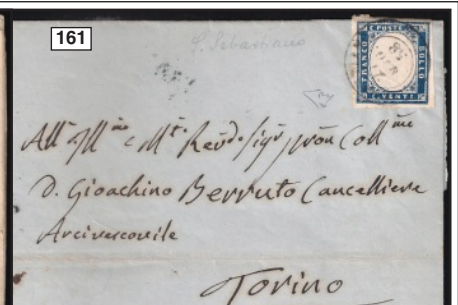 161
S. Sebastiano
C. POSTE
FRANCO
BOLLO
C. VENTI
All' Ill. mo e M. to Rev. do Sig. r Pron Coll. mo
D. Gioachino Berruto Cancelliere
Arcivescovile
Torino